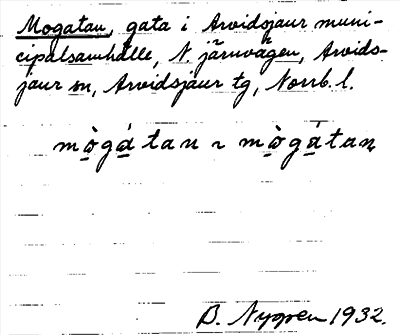 Mogatan, gata i Arvidsjaur muni-
cipalsamhälle, N. järnvägen, Arvids-
jaur sn, Arvidsjaur tg, Norrb. l.
mò̱gá̱tan ~ mò̱gá̱tan
B. Nygren 1932.